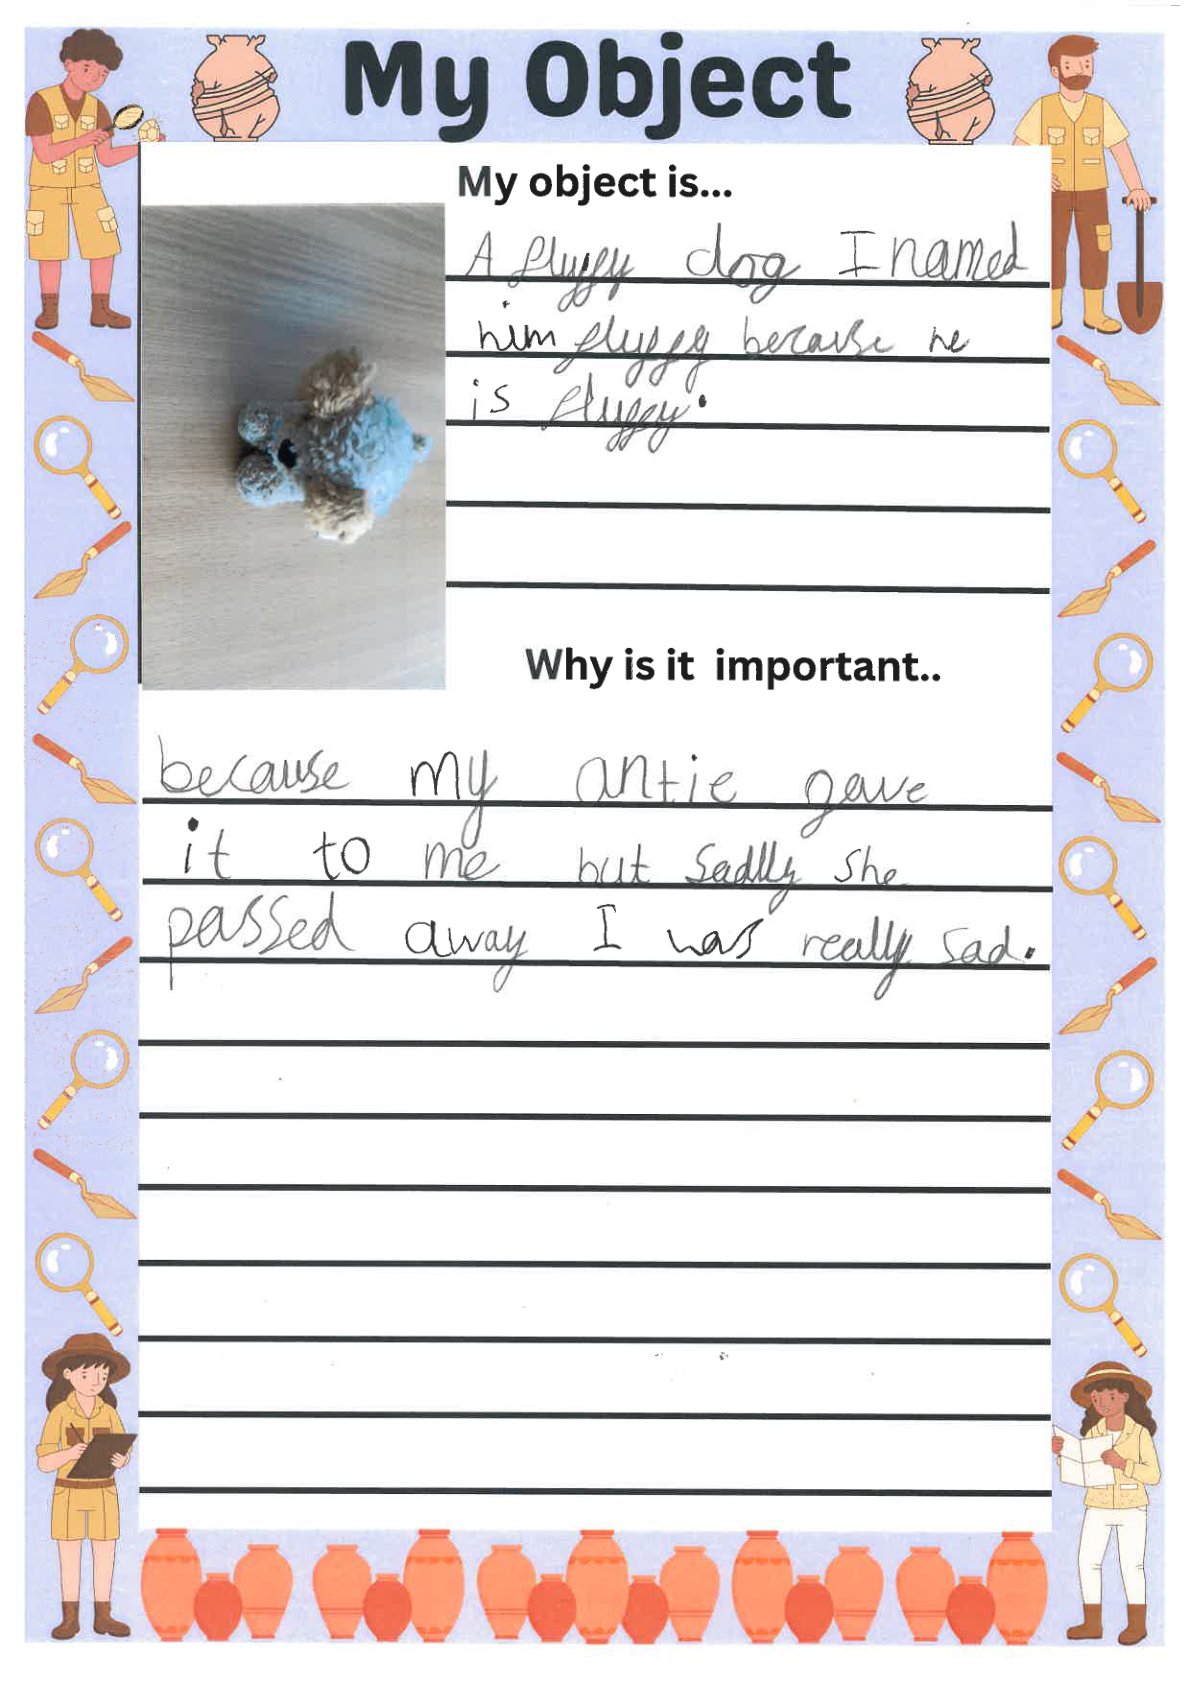 My Object
My object is...
A fluffy dog I named
him fluffy because he
is fluffy.
Why is it important..
because my antie gave
it to me but sadlly she
passed away I was really sad.